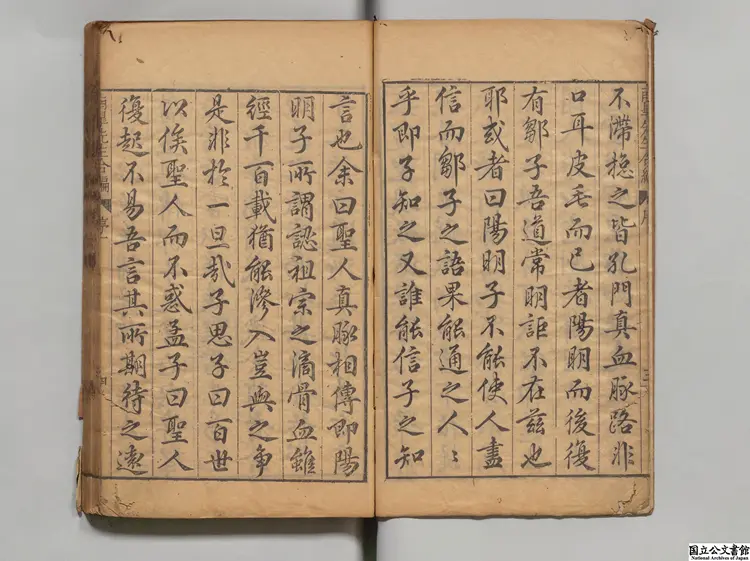 不滯揔之皆孔門真血脉路非
口耳皮毛而已者陽明而後復
有鄒子吾道常明詎不在兹也
耶或者曰陽明子不能使人盡
信而鄒子之語果能通之人〻
乎即子知之又誰能信子之知
言也余曰聖人真脉相傳即陽
明子所謂認祖宗之滴骨血雖
經千百載猶能滲入豈與之争
是非於一旦哉子思子曰百世
以俟聖人而不惑孟子曰聖人
復起不易吾言其所期待之遠
序
南皋先生合編
序一
国立公文書館
National Archives of Japan